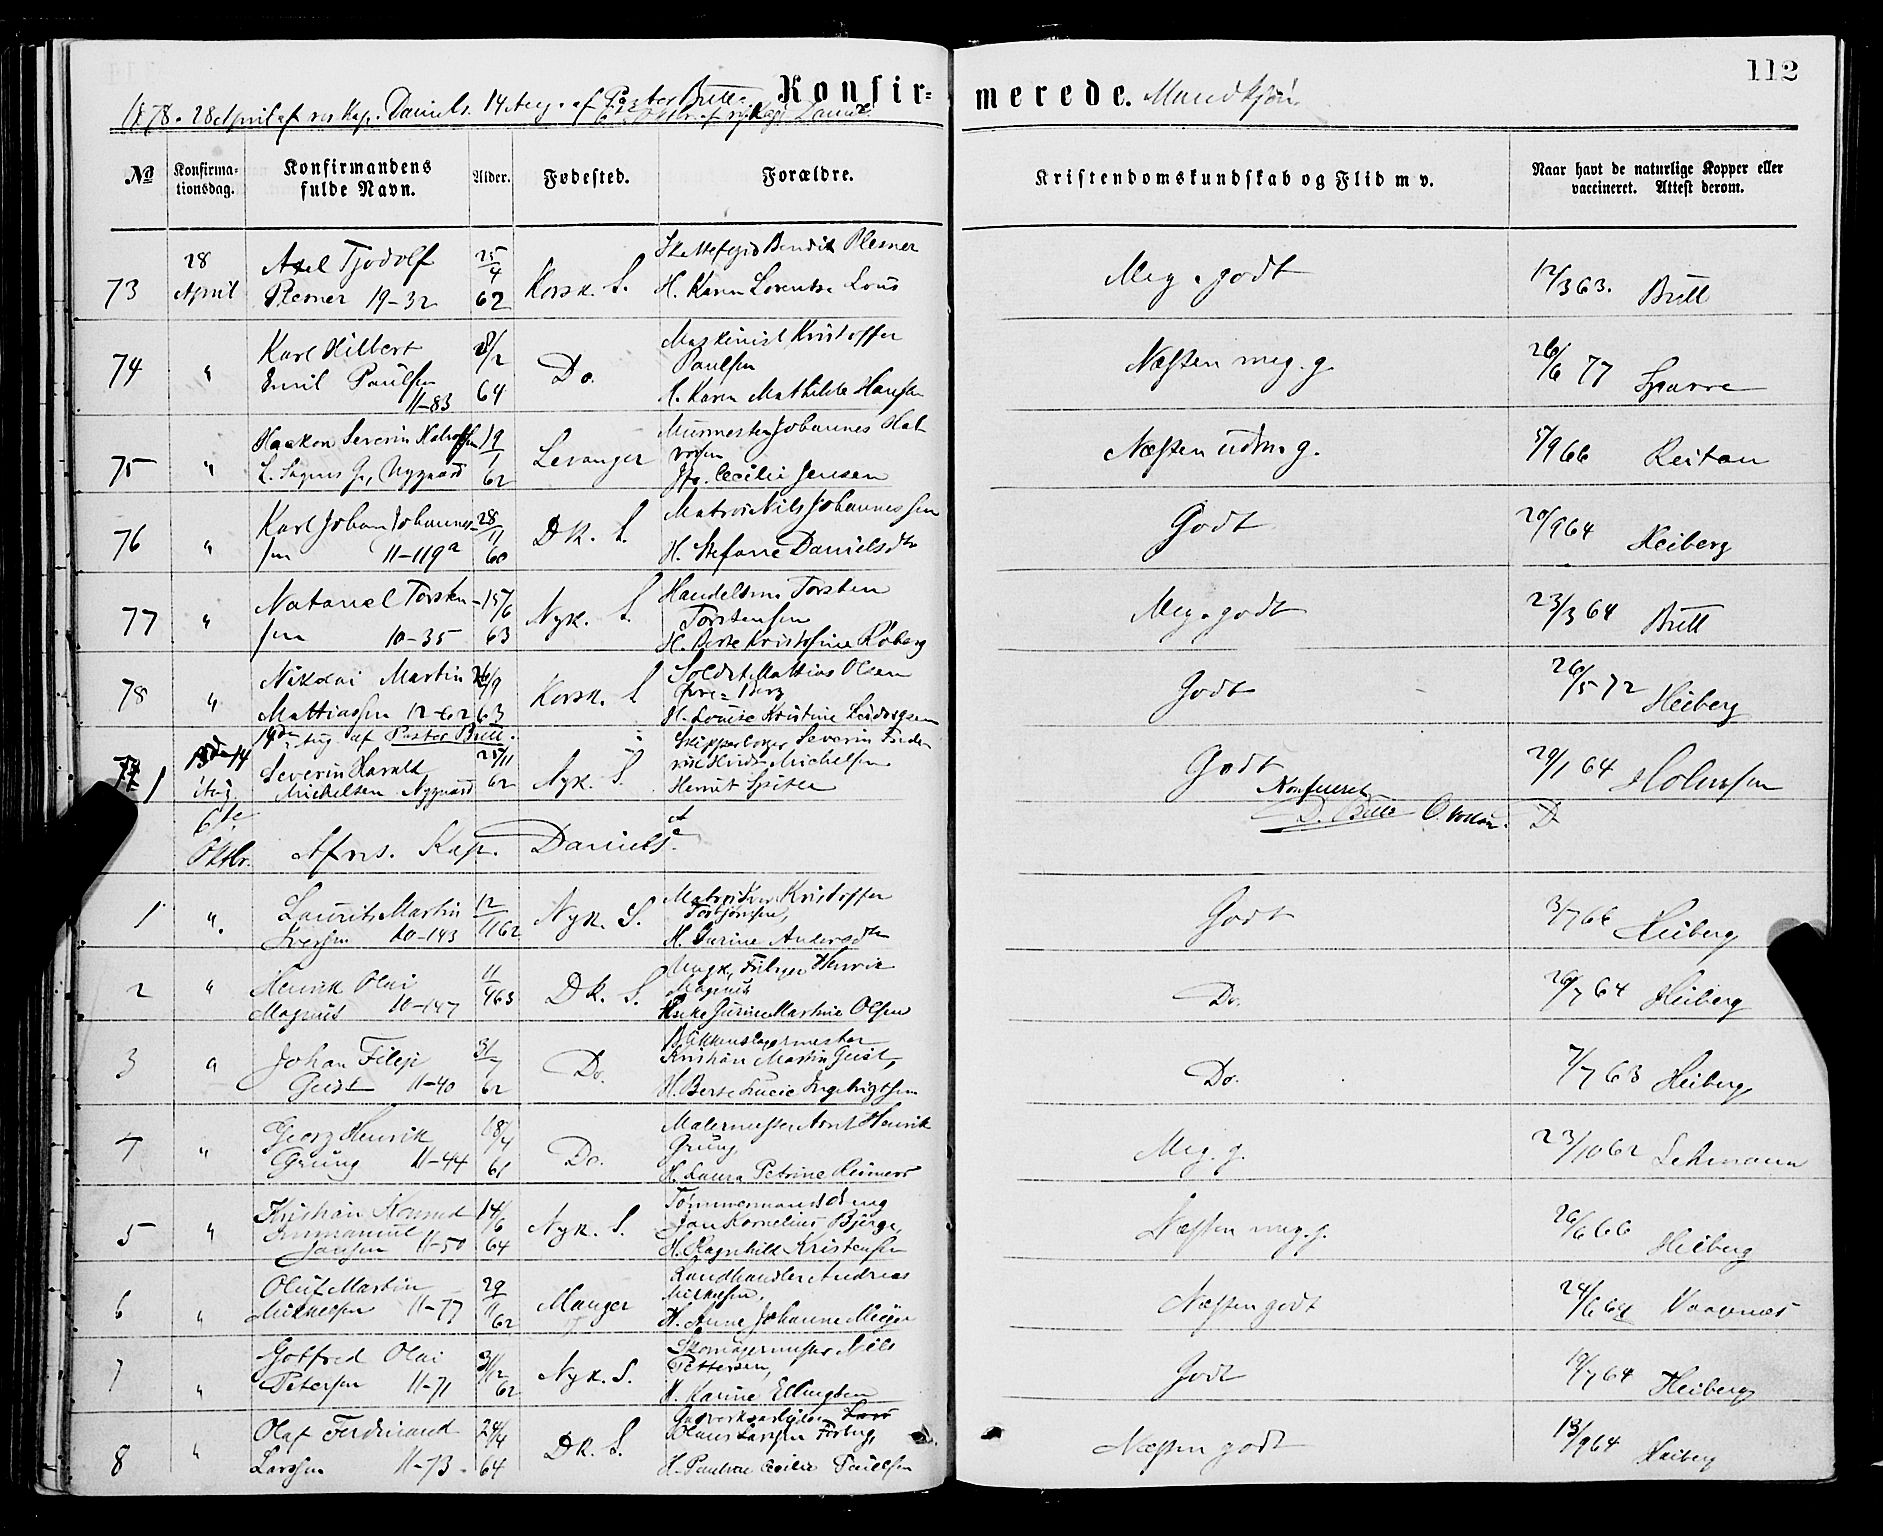 112
Konfir= merede. Mandkjøn
1878. 28 April af res Kap. Daniels. 14 Aug. af Pastor Brett.
№
Konfirma-
tionsdag.
Konfirmandens
fulde Navn.
Alder.
Fødested.
Forældre.
Kristendomskundskab og Flid m v.
Naar havt de naturlige Kopper eller
vaccineret. Attest derom.
73
28
April
Axel Tjodolf
Plesner 19-32
25/4
62
Korsk. S.
Bendix Plesner
H. Karen Lorentse Lous
Meg. godt
12/3 63. Brett
74
"
Karl Hilbert
Emil Paulsen
11-83
28/2
64
Do.
Maskinist Kristoffer
Paulsen
H. Karen Mathilde Hansen
Næsten meg. g.
26/6 77 Sparre
75
"
Haakon Severin Halvorsen
L. Sagens G., Nygaard
19/1
62
Levanger
Murmester Johannes Hal
vorsen
Jfr. Cecilie Jensen
Næsten udm g.
5/9 66 Reitan
76
"
Karl Johan Johannes-
sen 11-119a
28/11
60
DK. S.
Matros Nils Johannessen
H. Stefane Danielsdtr
Godt
20/9 64 Heiberg
77
"
Natanael Torsten-
sen 10-35
15/6
63
Nyk. S.
Handelsm. Torsten
Torstensen
H. Berte Kristofine Roberg
Meg. godt
23/3 64 Brett
78
"
Nikolai Martin
Mattiassen 12-62
26/9
63
Korsk. S
Soldat Mattias Olsen
H. Louise Kristine
Godt
26/5 72 Heiberg
14de Aug. af Pastor Brett.
1
14
Aug.
Severin Harald
Mickelsen Nygaard
25/11
62
Nyk. S.
Skipperborger Severin Frede
rik Michelsen
Godt
29/1 64 Holmsen
Konfereret
D. Brett
6te
Oktbr.
Af res. Kap. Daniels.
1
".
Laurits Martin
Iversen 10-143
12/11 62
Nyk. S.
Matros Iver Kristoffer
Torbjørnsen,
H. Gurine Andersdtr
Godt
3/7 66 Heiberg
2
"
Henrik Olai
Magnus 10-147
11/4 63
DK. S.
Henrik
Magnus
Gurine Martine Olsen
Do.
26/7 64 Heiberg
3
"
Johan Filip
Geist 11-40
31/7
62
Do.
Blikkenslagermester
Kristian Martin Geist,
H. Berte Lucie Ingebrigtsen
Do.
7/7 63 Heiberg
4
"
Georg Henrik
Grung 11-44
18/4
61
Do.
Malermester Arnt Henrik
Grung
H. Laura Petrine Reimers
Meg. g.
23/10 62 Lehmann
5
"
Kristian Konrad
Emmanuel
Jansen 11-50
14/6
64
Nyk. S.
Tømmermand
Jan Kornelius Bjørge
H. Ragnhild Kristensen
Næsten meg. g.
26/6 66 Heiberg
6
"
Oluf Martin
Mikkelsen 11-77
29/11
62
Manger
Landhandler Andreas
Mikkelsen.
H. Anne Johanne Meyer
Næsten godt
24/6 64
7
"
Gotfred Olai
Petersen 11-71
31/12
62
Nyk. S.
Skomagermester Nils
Pettersen,
H. Karine Ellingsen
Godt
19/7 64 Heiberg
8
"
Olaf Ferdinand
Larssen 11-73.
24/4
64
DK. S.
Gasverksarbeider
Olaus Larssen
H. Pauline Cecilie Paulsen
Næsten godt
13/9 64 Heiberg